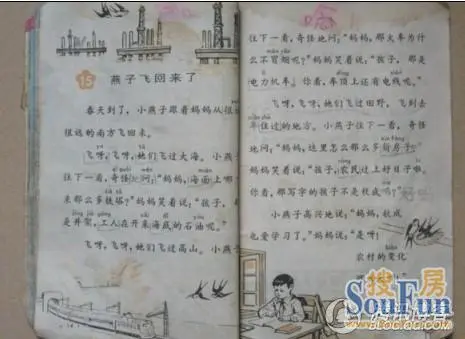 15 燕子飞回来了
春天到了，小燕子跟着妈妈从很
很远的南方飞回来。
飞呀，飞呀，她们飞过大海。小燕子
往下一看，奇怪地问：“妈妈，海面上哪
来那么多铁塔？”妈妈笑着说：“孩子，那
是井架，工人在开采海底的石油呢。”
飞呀，飞呀，她们飞过高山。小燕子
往下一看，奇怪地问：“妈妈，那火车为什
么不冒烟呢？”妈妈笑着说：“孩子，那是
电力机车。你看，车顶上还有电线呢。”
飞呀，飞呀，她们飞过田野，飞到去
年住过的地方。小燕子往下一看，奇怪
地问：“妈妈，这里怎么那么多新房子？”
妈妈笑着说：“孩子，农民过上好日子啦。
你看，那写字的孩子不是秋成吗？”
小燕子高兴地说：“妈妈，秋成
也爱学习了。”妈妈说：“是呀！
农村的变化
搜房
SouFun